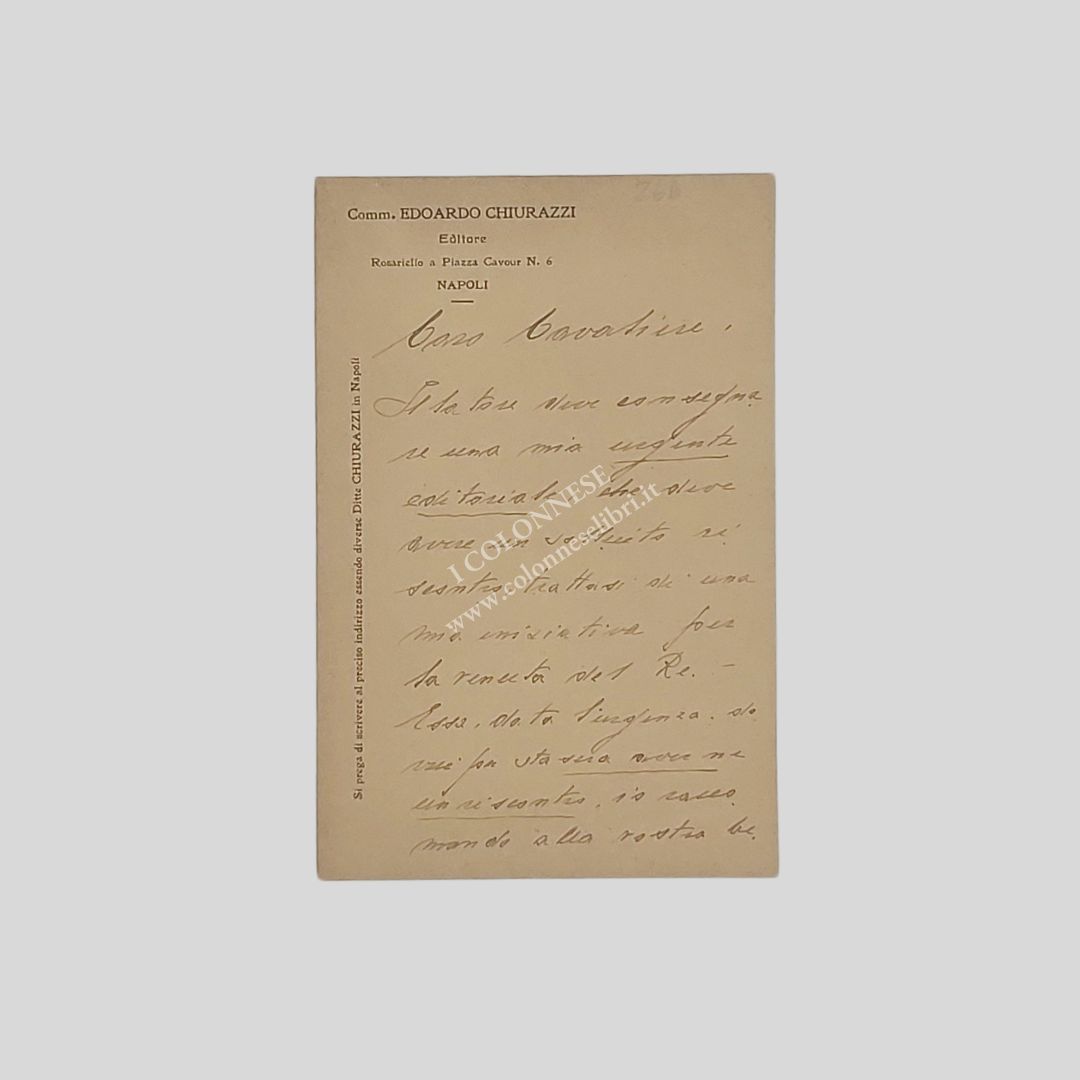 Comm. EDOARDO CHIURAZZI
Editore
Rosariello a Piazza Cavour N. 6
NAPOLI
Si prega di scrivere al preciso indirizzo essendo diverse Ditte CHIURAZZI in Napoli
Caro Cavaliere,
Il latore deve consegna
re una mia urgente
editoriale che deve
avere un subito ri
scontro, trattasi di una
mia iniziativa per
la venuta del Re. –
Essa, data l'urgenza, do
vrei per stasera averne
un riscontro, io racco
mando alla vostra be.
I COLONNESE
www.colonneselibri.it